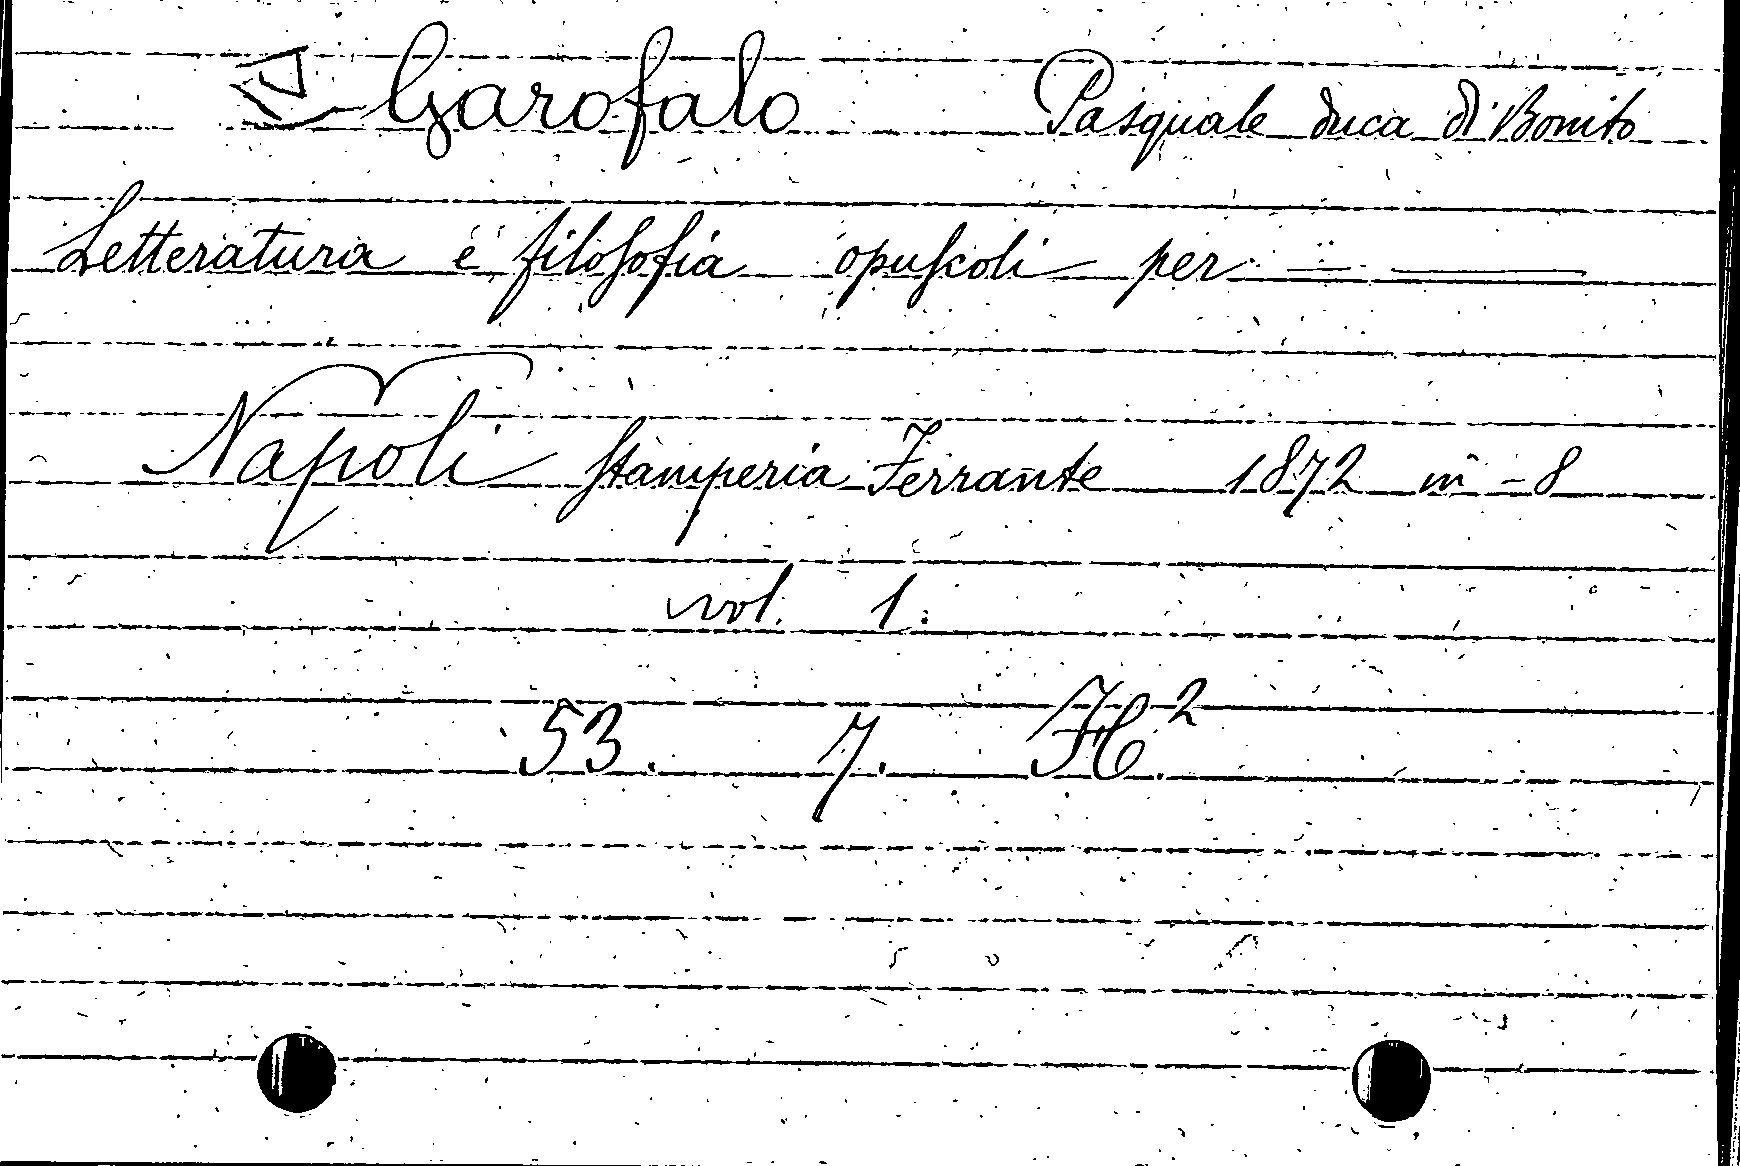 Garofalo Pasquale duca di Bonito
Letteratura e filosofia opuscoli per — ——
Napoli Stamperia Ferrante 1872 in-8
vol. 1.
53. 7. H².